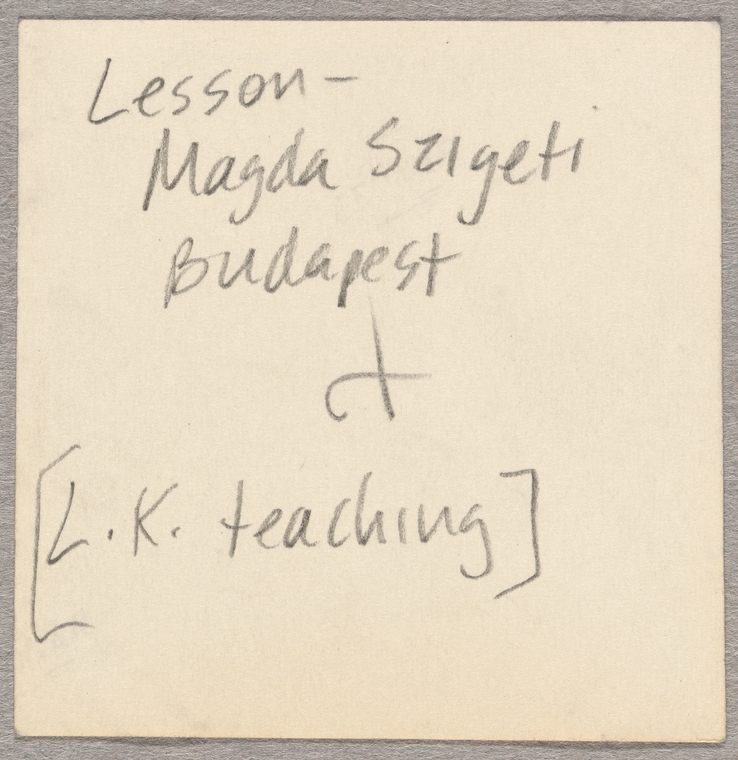 Lesson-
Magda Szigeti
Budapest
+
[L.K. teaching]